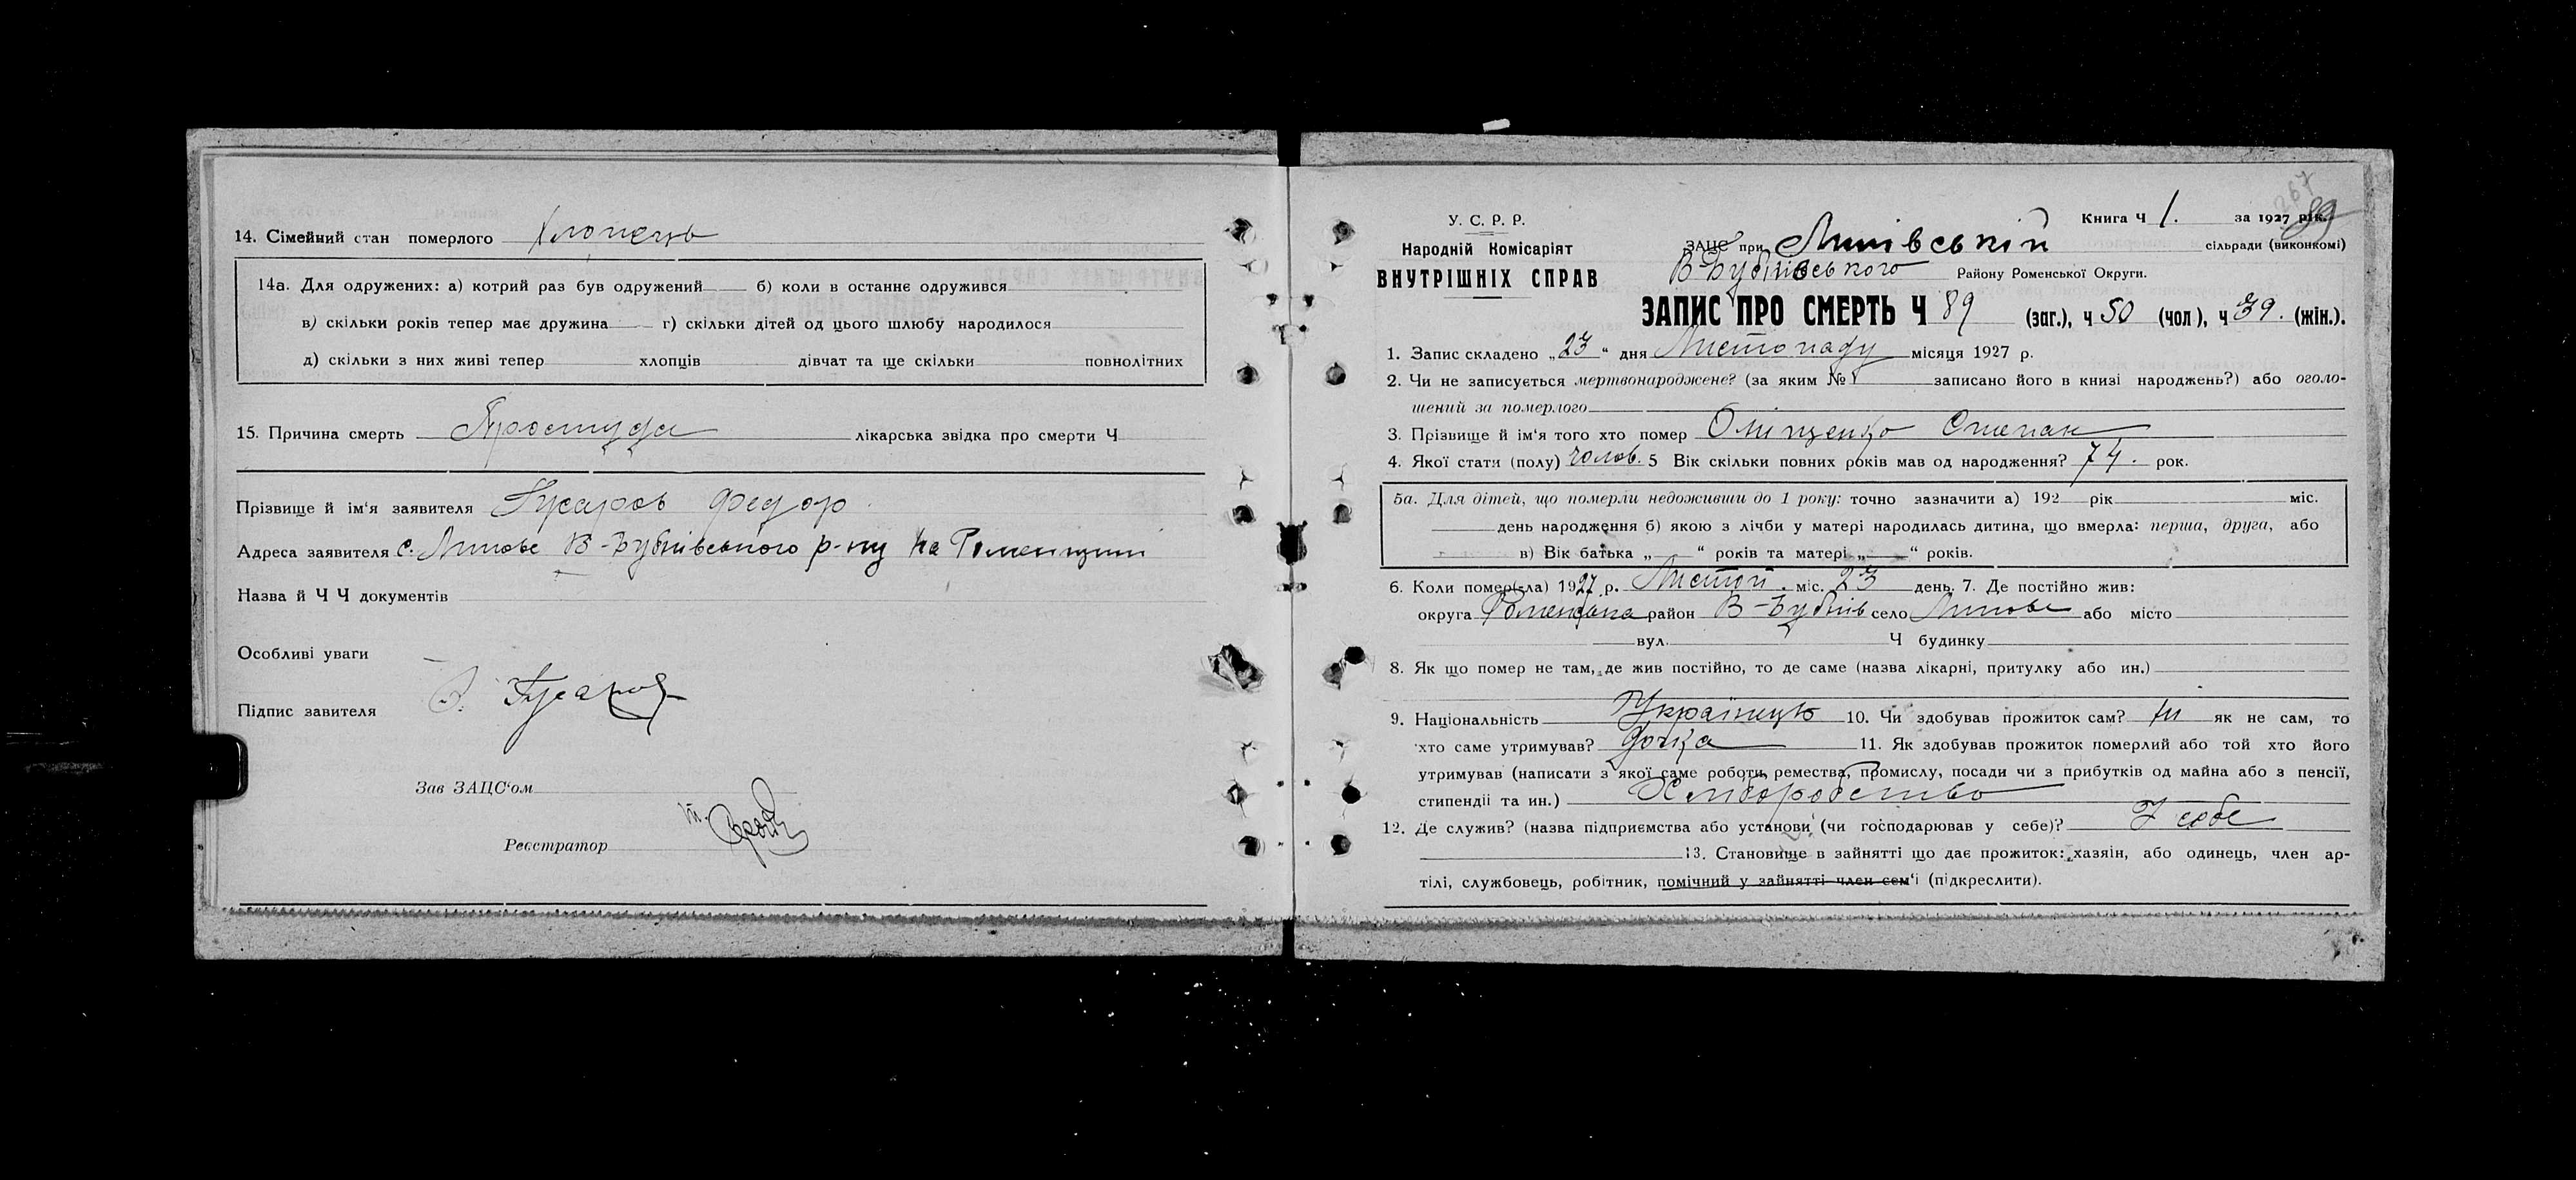 14. Сімейний стан померлого Хлопець
14а. Для одружених: а) котрий раз був одружений б) коли в останнє одружився
в) скільки років тепер має дружина г) скільки дітей од цього шлюбу народилося
д) скільки з них живі тепер хлопців дівчат та ще скільки повнолітних
15. Причина смерть Простуда лікарська звідка про смерти Ч
Прізвище й ім'я заявителя Гусаров Федор
Адреса заявителя с. Липове В-Бубнівського р-ну на Роменщині
Назва й Ч Ч документів
Особливі уваги
Підпис завителя Гусаров
Зав ЗАЦС'ом
Реєстратор
267
У. С. Р. Р. Книга Ч 1. за 1927 рік. 89
Народній Комісаріят ЗАЦС при Липівській сільради (виконкомі)
ВНУТРІШНІХ СПРАВ В-Бубнівського Району Роменської Округи.
ЗАПИС ПРО СМЕРТЬ Ч 89 (заг.), ч 50 (чол), ч 39. (жін.).
1. Запис складено „23“ дня Листопаду місяця 1927 р.
2. Чи не записується мертвонароджене? (за яким № записано його в книзі народжень?) або оголо-
шений за померлого
3. Прізвище й ім'я того хто помер Оніщенко Степан
4. Якої стати (полу) чолов. 5 Вік скільки повних років мав од народження? 74. рок.
5а. Для дітей, що померли недоживши до 1 року: точно зазначити а) 192 рік міс.
день народження б) якою з лічби у матері народилась дитина, що вмерла: перша, друга, або
в) Вік батька „ “ років та матері „ “ років.
6. Коли помер(-ла) 1927 р. Листоп. міс. 23 день. 7. Де постійно жив:
округа Роменська район В-Бубнів село Липове або місто
вул. Ч будинку
8. Як що помер не там, де жив постійно, то де саме (назва лікарні, притулку або ин.)
9. Національність Українець 10. Чи здобував прожиток сам? ні як не сам, то
хто саме утримував? дочка 11. Як здобував прожиток померлий або той хто його
утримував (написати з якої саме роботи, ремества, промислу, посади чи з прибутків од майна або з пенсії,
стипендії та ин.) Хліборобство
12. Де служив? (назва підприємства або установи (чи господарював у себе)? У себе
13. Становище в зайнятті що дає прожиток: хазяін, або одинець, член ар-
тілі, службовець, робітник, помічний у зайнятті член сем'і (підкреслити).